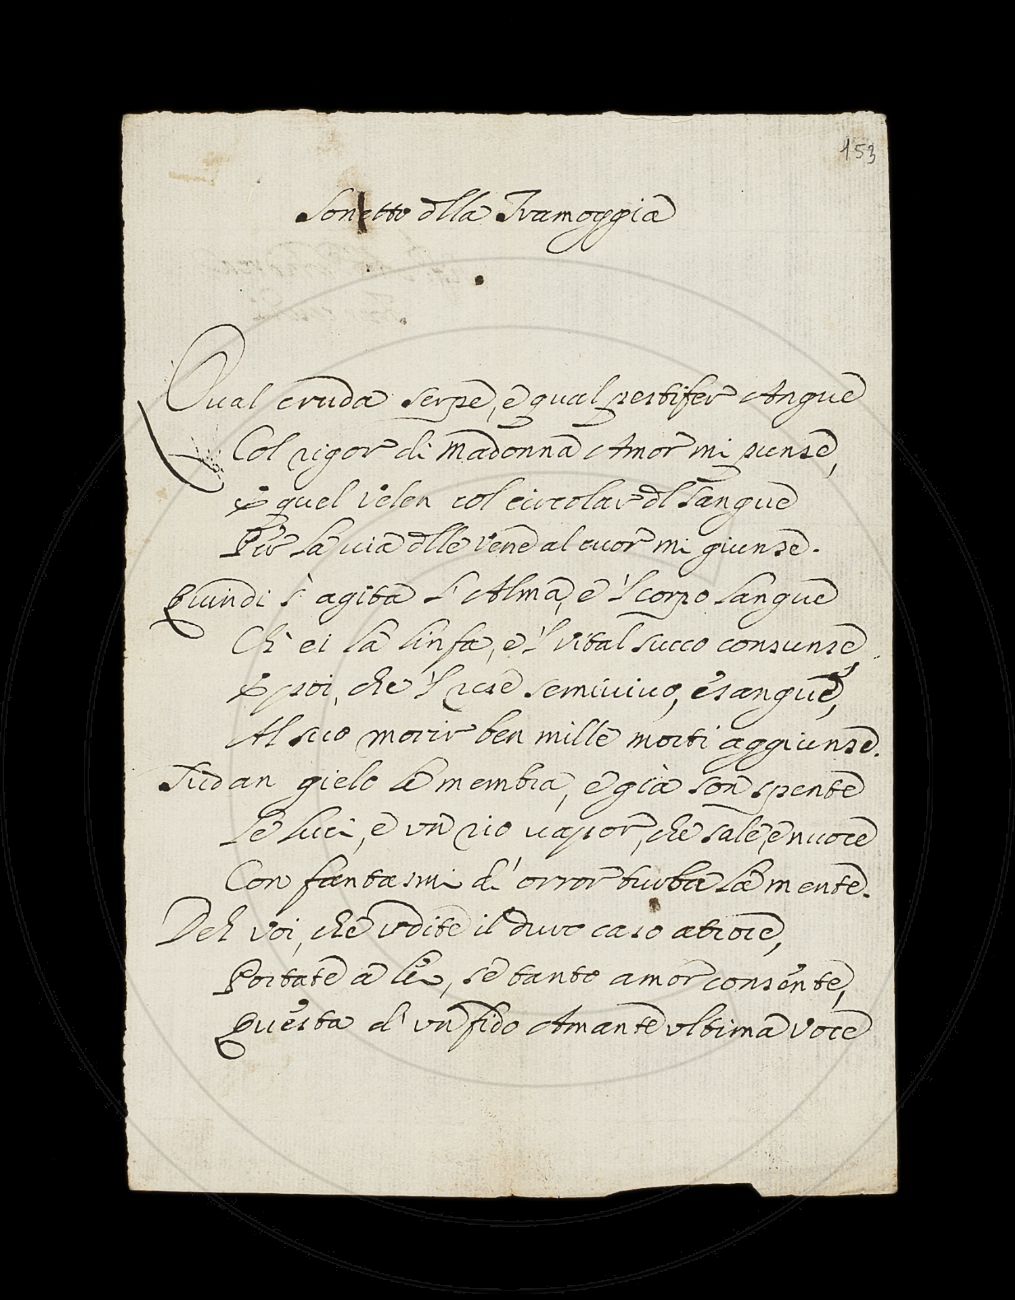 153
Sonetto dlla Tramoggia
Qual cruda serpe, e qual pestifer Angue
Col rigor di Madonna Amor mi punse,
E quel velen col circolar dl sangue
Per la via dlle vene al cuor mi giunse.
Quindi s' agita l' Alma, e 'l corpo langue
Ch' ei la linfa, e 'l vital succo consunse,
E poi, che 'l rese semivivo, esangue,
Al suo morir ben mille morti aggiunse.
Sudan gielo le membra, e già son spente
Le luci, e un rio vapor, che sale, e nuoce
Con fantasmi d' orror turba la mente.
Deh voi, che udite il duro caso atroce,
Portate a lei, se tanto amor consente,
Questa d' un fido Amante ultima voce